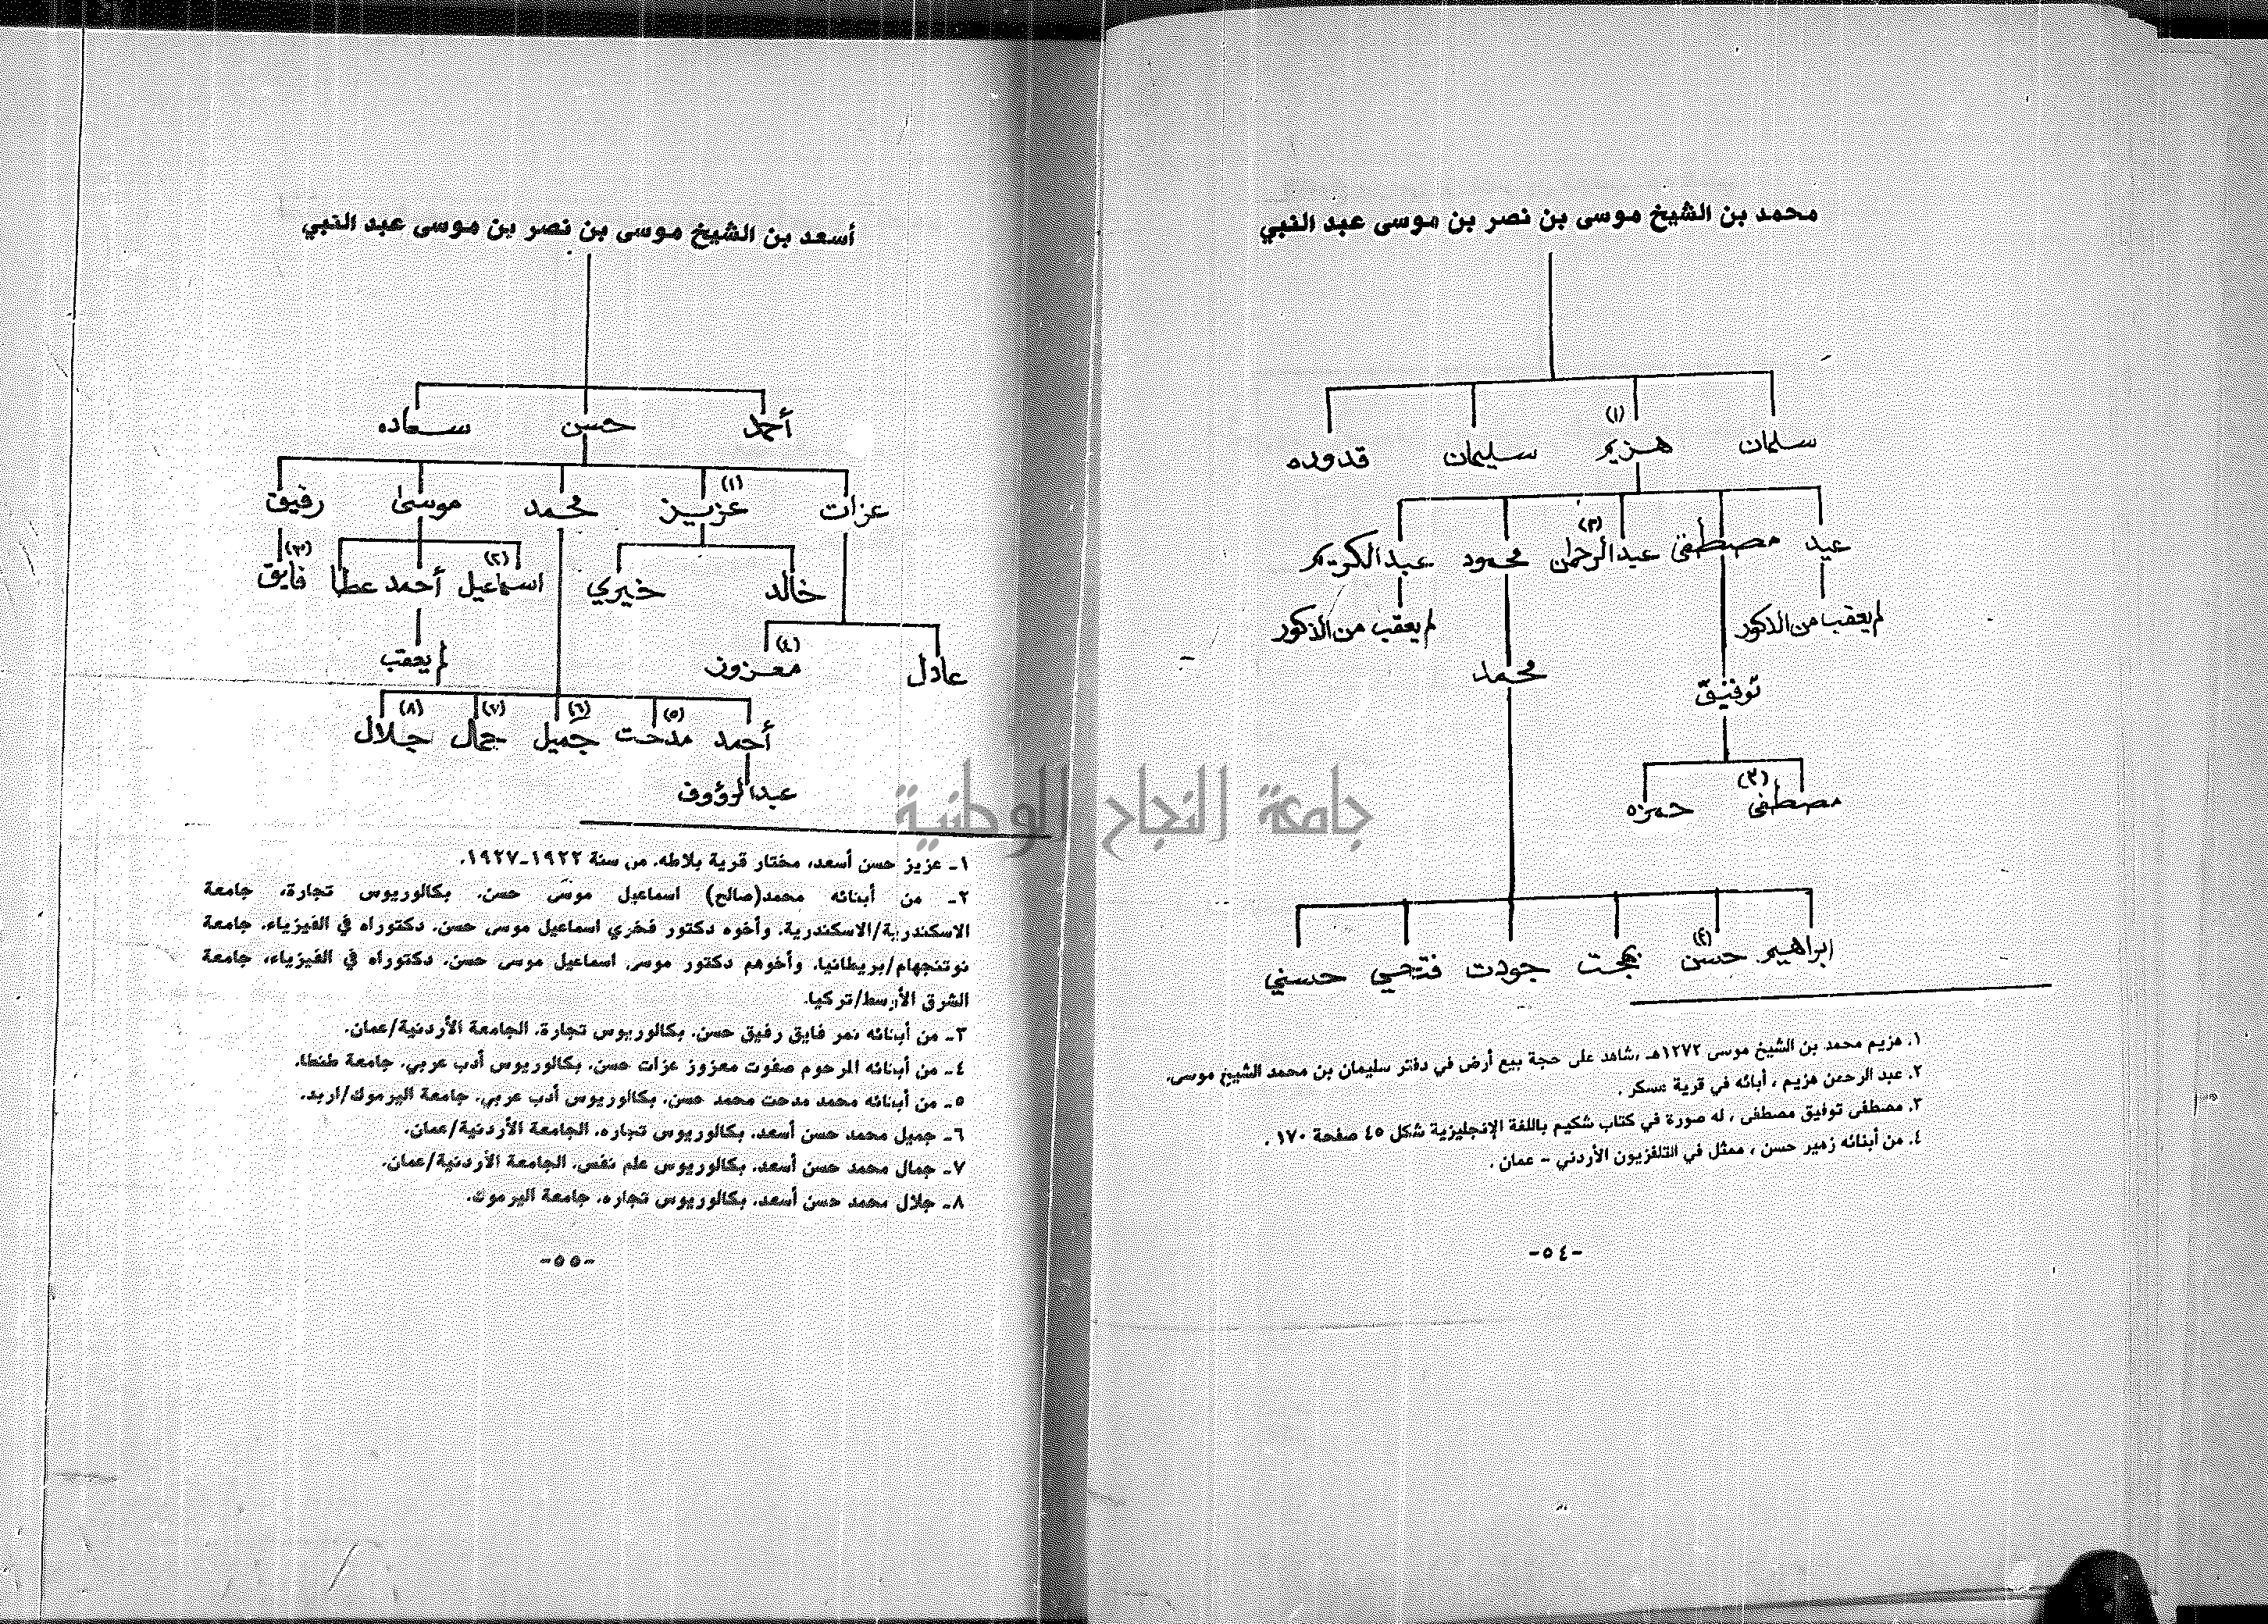 محمد بن الشيخ موسى بن نصر بن موسى عبد النبي
سلمان هزيم (١) سليمان قدوده
عيد مصطفى عبدالرحمن (٢) محمود عبدالكريم
لم يعقب من الذكور لم يعقب من الذكور
محمد
توفيق
مصطفى (٣) حمزه
ابراهيم حسن (٤) بهجت جودت فتحي حسني
١. هزيم محمد بن الشيخ موسى ١٢٧٢هـ ،شاهد على حجة بيع أرض في دفتر سليمان بن محمد الشيخ موسى.
٢. عبد الرحمن هزيم ، أبنائه في قرية عسكر .
٣. مصطفى توفيق مصطفى ، له صورة في كتاب شكيم باللغة الإنجليزية شكل ٤٥ صفحة ١٧٠ .
٤. من أبنائه زهير حسن ، ممثل في التلفزيون الأردني – عمان .
-٥٤-
أسعد بن الشيخ موسى بن نصر بن موسى عبد النبي
أحمد حسن سعاده
عزات عزيز (١) محمد موسى رفيق
خالد خيري اسماعيل (٢) أحمد عطا فايق (٣)
عادل معزوز (٤) لم يعقب
أحمد مدحت (٥) جميل (٦) جمال (٧) جلال (٨)
عبدالرؤوف
١ـ عزيز حسن أسعد، مختار قرية بلاطه. من سنة ١٩٢٢-١٩٢٧.
٢ـ من أبنائه محمد(صالح) اسماعيل موسى حسن. بكالوريوس تجارة، جامعة
الاسكندرية/الاسكندرية. وأخوه دكتور فخري اسماعيل موسى حسن. دكتوراه في الفيزياء. جامعة
نوتنجهام/بريطانيا. وأخوهم دكتور موسى اسماعيل موسى حسن. دكتوراه في الفيزياء، جامعة
الشرق الأوسط/تركيا.
٣ـ من أبنائه نمر فايق رفيق حسن. بكالوريوس تجارة. الجامعة الأردنية/عمان.
٤ـ من أبنائه المرحوم صفوت معزوز عزات حسن. بكالوريوس أدب عربي. جامعة طنطا.
٥ـ من أبنائه محمد مدحت محمد حسن. بكالوريوس أدب عربي. جامعة اليرموك/اربد.
٦ـ جميل محمد حسن أسعد. بكالوريوس تجاره. الجامعة الأردنية/عمان.
٧ـ جمال محمد حسن أسعد. بكالوريوس علم نفس. الجامعة الأردنية/عمان.
٨ـ جلال محمد حسن أسعد. بكالوريوس تجاره. جامعة اليرموك.
-٥٥-
جامعة النجاح الوطنية